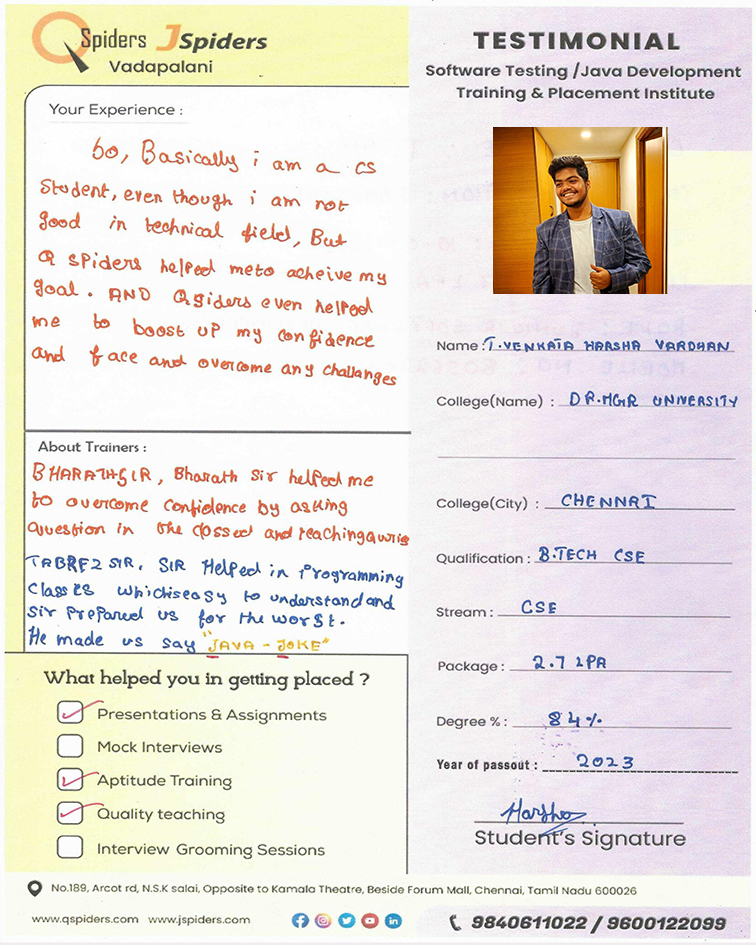 QSpiders JSpiders
Vadapalani
Your Experience :
So, Basically i am a cs
Student, even though i am not
good in technical field, But
Q spiders helped meto acheive my
goal. AND Qsiders even helped
me to boost up my confidence
and face and overcome any challanges
About Trainers :
BHARATHSIR, Bharath Sir helped me
to overcome confidence by asking
question in the and teaching
TABREZ SIR, SIR Helped in Programming
Classes whichiseasy to understand and
sir prepared us for the worst.
He made us say "JAVA - JOKE"
What helped you in getting placed ?
Presentations & Assignments
Mock Interviews
Aptitude Training
Quality teaching
Interview Grooming Sessions
TESTIMONIAL
Software Testing /Java Development
Training & Placement Institute
Name : T.VENKATA HARSHA VARDHAN
College(Name) : DR.MGR UNIVERSITY
College(City) : CHENNAI
Qualification : B.TECH CSE
Stream : CSE
Package : 2.7 LPA
Degree % : 84%
Year of passout : 2023
Harsha
Student's Signature
No.189, Arcot rd, N.S.K salai, Opposite to Kamala Theatre, Beside Forum Mall, Chennai, Tamil Nadu 600026
www.qspiders.com www.jspiders.com
9840611022 / 9600122099